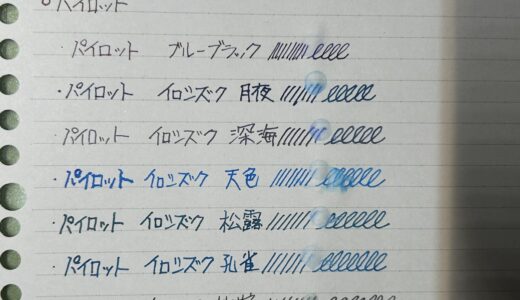 パイロット
・パイロット ブルーブラック
・パイロット イロシズク 月夜
・パイロット イロシズク 深海
・パイロット イロシズク 天色
・パイロット イロシズク 松露
・パイロット イロシズク 孔雀